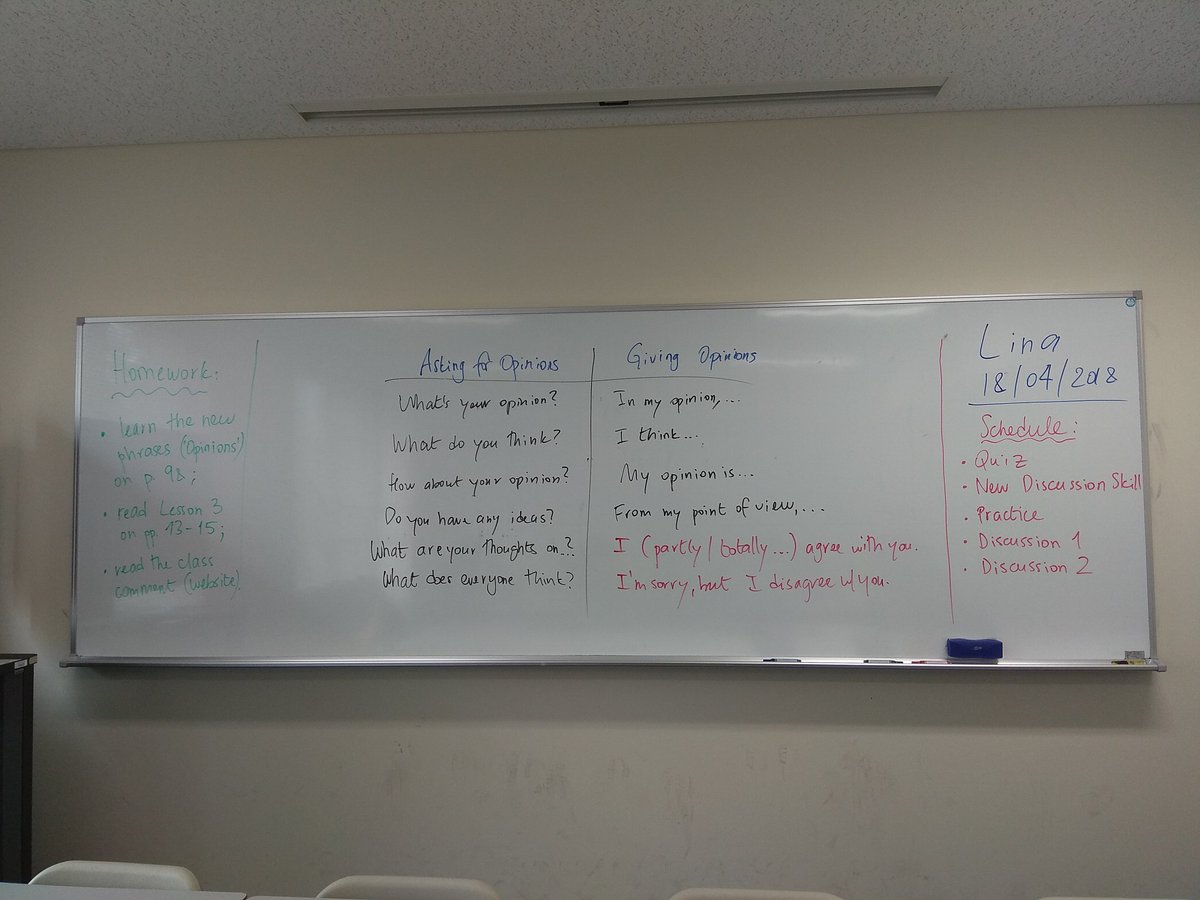 Homework:
• learn the new
phrases ('Opinions')
on p. 98;
• read Lesson 3
on pp. 13-15;
• read the class
comment (website).
Asking for Opinions
What's your opinion?
What do you think?
How about your opinion?
Do you have any ideas?
What are your thoughts on...?
What does everyone think?
Giving Opinions
In my opinion,...
I think...
My opinion is...
From my point of view,...
I (partly / totally...) agree with you.
I'm sorry, but I disagree w/ you.
Lina
18/04/2018
Schedule:
• Quiz
• New Discussion Skill
• Practice
• Discussion 1
• Discussion 2